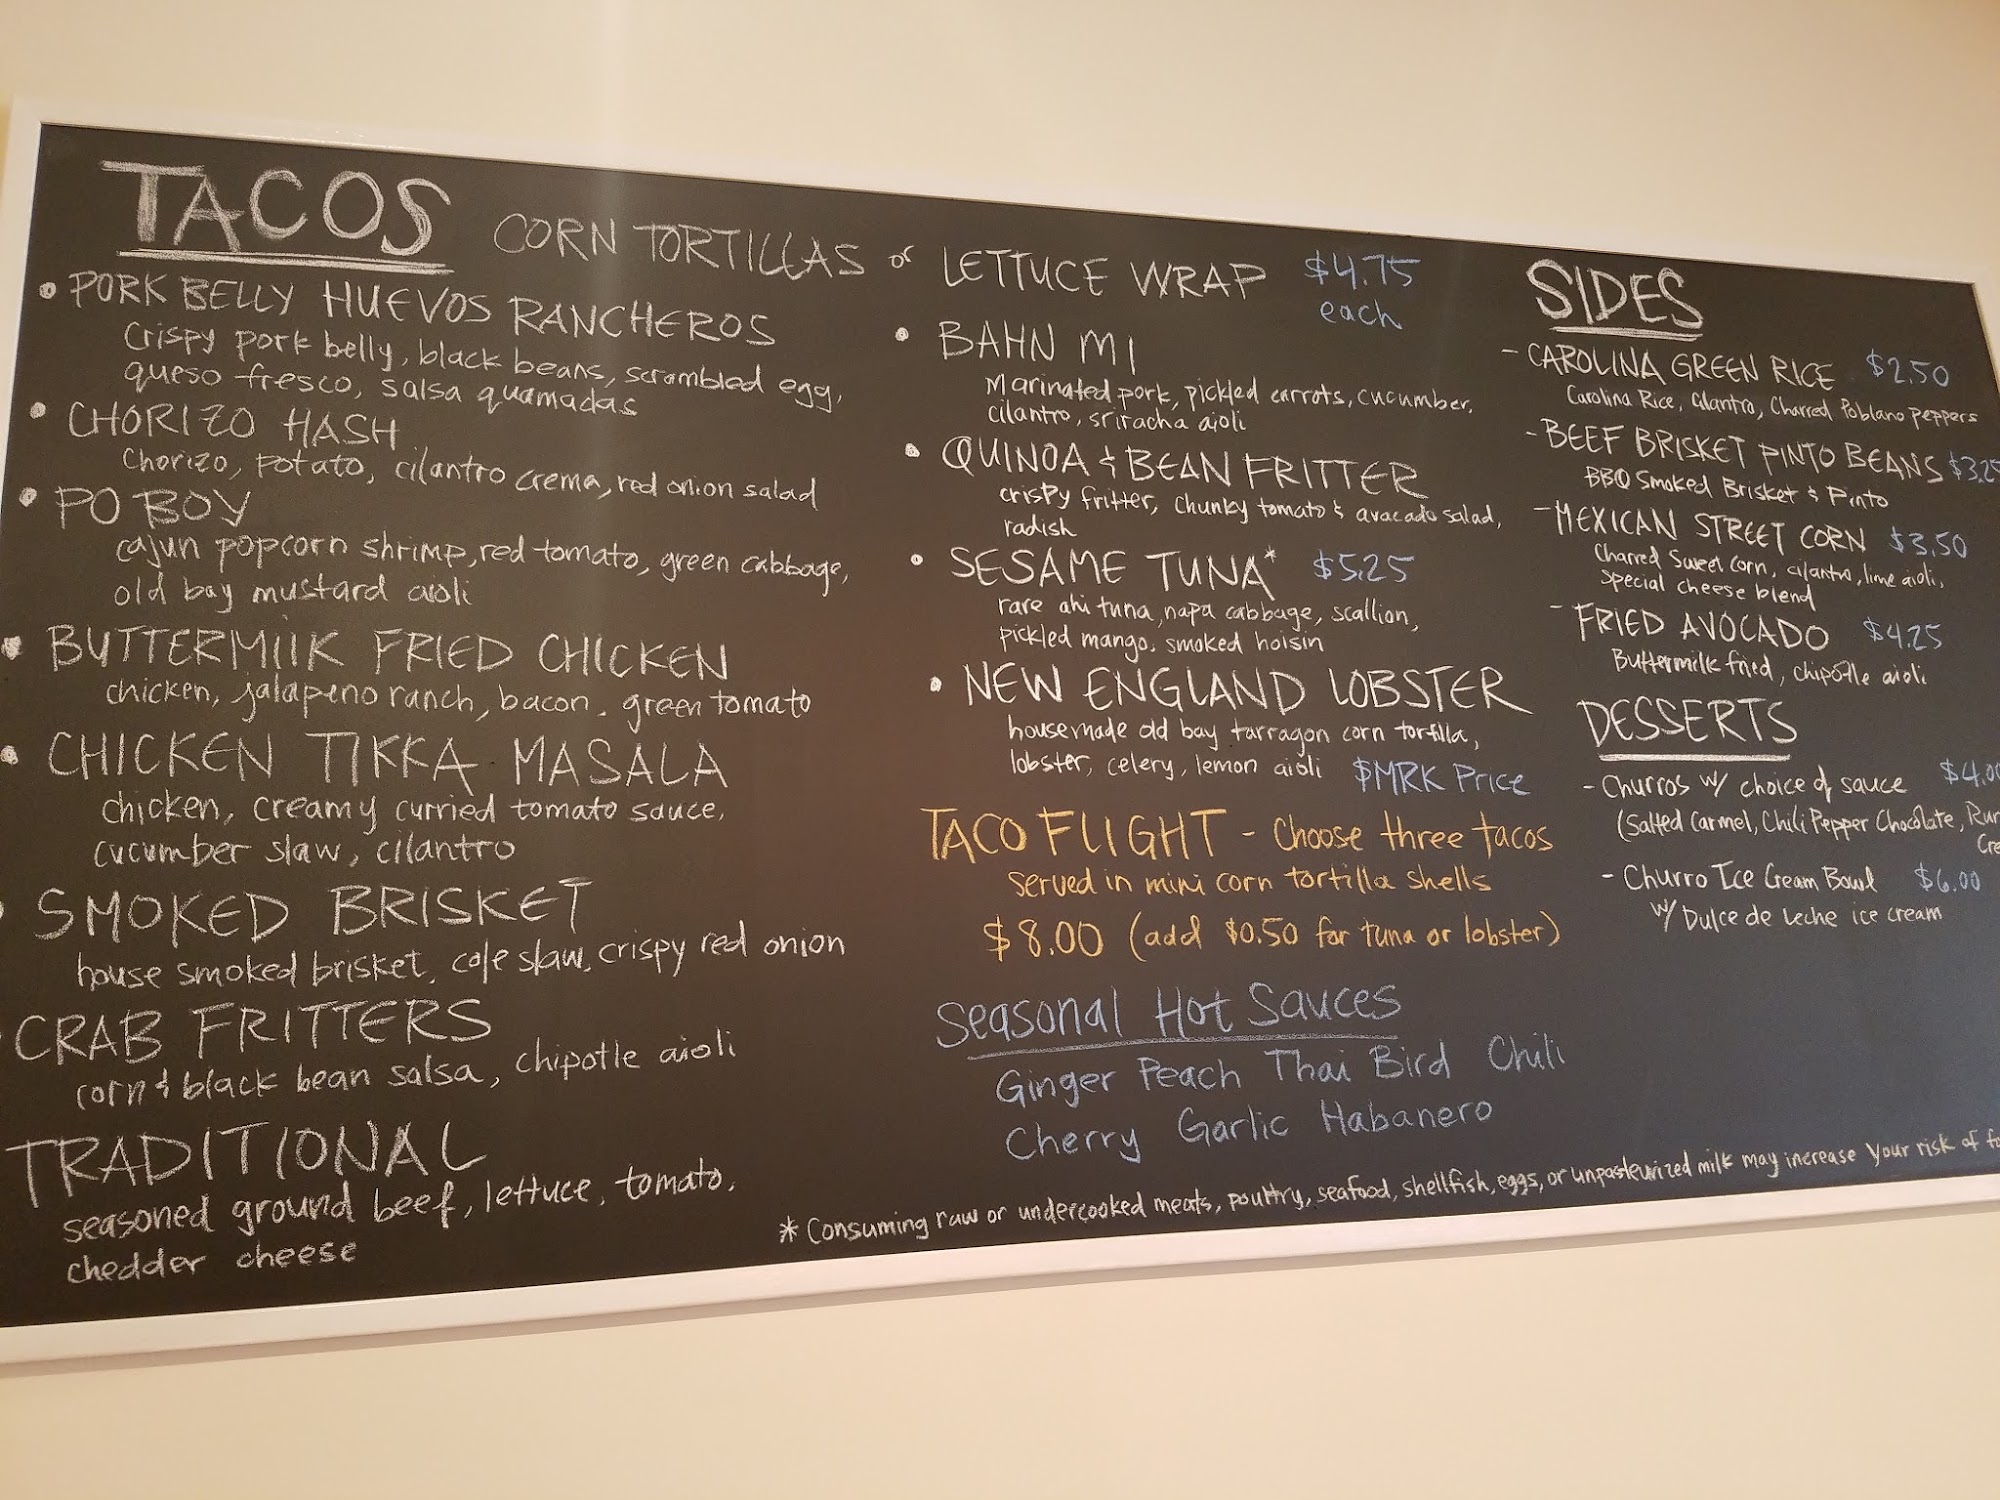 TACOS CORN TORTILLAS or LETTUCE WRAP $4.75
each
• PORK BELLY HUEVOS RANCHEROS
Crispy pork belly, black beans, scrambled egg,
queso fresco, salsa quamadas
• CHORIZO HASH
Chorizo, potato, cilantro crema, red onion salad
• PO BOY
cajun popcorn shrimp, red tomato, green cabbage,
old bay mustard aioli
• BUTTERMILK FRIED CHICKEN
chicken, jalapeno ranch, bacon, green tomato
• CHICKEN TIKKA MASALA
chicken, creamy curried tomato sauce,
cucumber slaw, cilantro
SMOKED BRISKET
house smoked brisket, cole slaw, crispy red onion
CRAB FRITTERS
corn & black bean salsa, chipotle aioli
TRADITIONAL
seasoned ground beef, lettuce, tomato,
chedder cheese
• BAHN MI
Marinated pork, pickled carrots, cucumber,
cilantro, sriracha aioli
• QUINOA & BEAN FRITTER
crispy fritter, chunky tomato & avacado salad,
radish
• SESAME TUNA* $5.25
rare ahi tuna, napa cabbage, scallion,
pickled mango, smoked hoisin
• NEW ENGLAND LOBSTER
housemade old bay tarragon corn tortilla,
lobster, celery, lemon aioli $MRK Price
TACO FLIGHT - Choose three tacos
served in mini corn tortilla shells
$8.00 (add $0.50 for tuna or lobster)
Seasonal Hot Sauces
Ginger Peach Thai Bird Chili
Cherry Garlic Habanero
* Consuming raw or undercooked meats, poultry, seafood, shellfish, eggs, or unpasteurized milk may increase your risk of
SIDES
- CAROLINA GREEN RICE $2.50
Carolina Rice, Cilantro, Charred Poblano peppers
- BEEF BRISKET PINTO BEANS $3.25
BBQ Smoked Brisket & Pinto
- MEXICAN STREET CORN $3.50
Charred Sweet corn, cilantro, lime aioli,
special cheese blend
- FRIED AVOCADO $4.25
Buttermilk fried, chipotle aioli
DESSERTS
- Churros w/ choice of sauce $4.00
(Salted Carmel, Chili Pepper Chocolate,
- Churro Ice Cream Bowl $6.00
w/ Dulce de leche ice cream